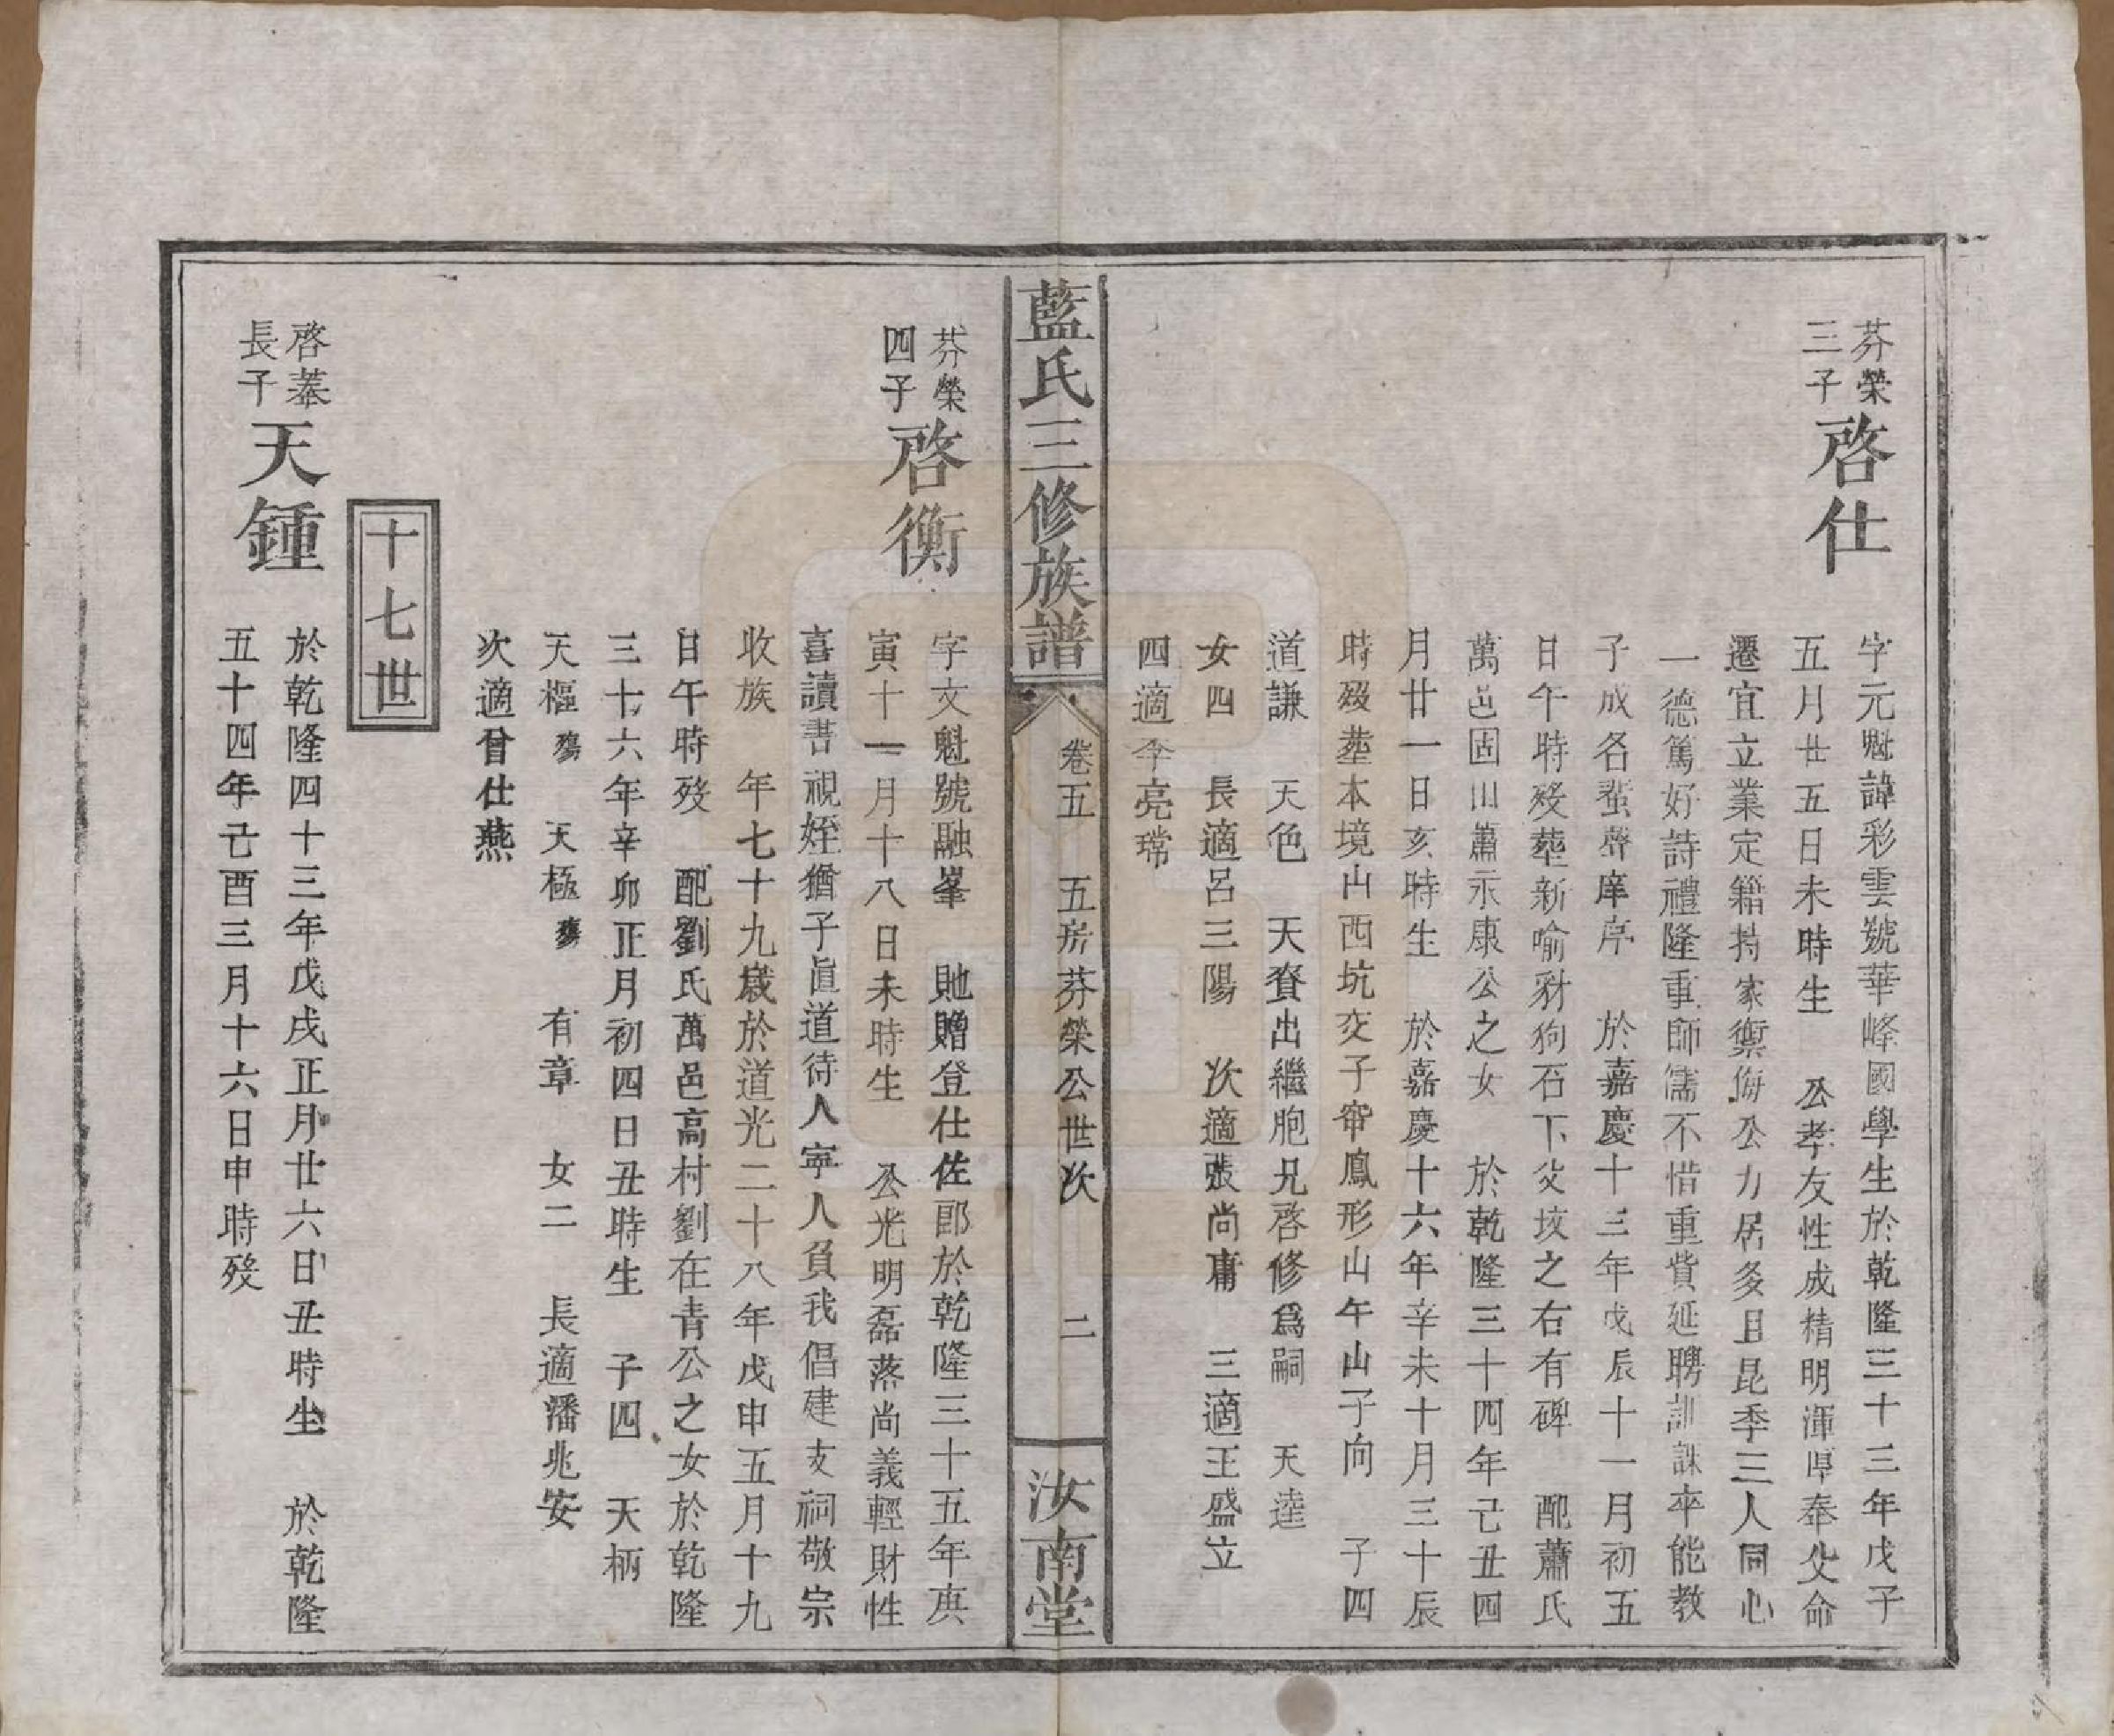 芬榮
三子
啓仕
字元魁諱彩雲號華峰國學生於乾隆三十三年戊子
五月廿五日未時生　公孝友性成精明渾厚奉父命
遷宜立業定籍持家禦侮公力居多且昆季三人同心
一德篤好詩禮隆重師儒不惜重貲延聘訓課卒能教
子成名蜚聲庠序　於嘉慶十三年戊辰十一月初五
日午時歿葬新喻豺狗石下父坟之右有碑　配蕭氏
萬邑固山蕭示康公之女　於乾隆三十四年己丑四
月廿一日亥時生　於嘉慶十六年辛未十月三十辰
時歿葬本境山西坑交子窩鳳形山午山子向　子四
道謙　天色　天賚出繼胞兄啓修爲嗣　天逵
女四　長適呂三陽　次適張尚庸　三適王盛立
四適李亮瑺
藍氏三修族譜
卷五　五房芬榮公世次　二
汝南堂
芬榮
四子
啓衡
字文魁號融峯　貤贈登仕佐郎於乾隆三十五年庚
寅十一月十八日未時生　公光明磊落尚義輕財性
喜讀書視姪猶子眞道待人寧人負我倡建支祠敬宗
收族　年七十九歲於道光二十八年戊申五月十九
日午時歿　配劉氏萬邑高村劉在青公之女於乾隆
三十六年辛卯正月初四日丑時生　子四　天柄
天樞殤　天極殤　有章　女二　長適潘兆安
次適曾仕燕
十七世
啓菶
長子
天鍾
於乾隆四十三年戊戌正月廿六日丑時生　於乾隆
五十四年己酉三月十六日申時歿